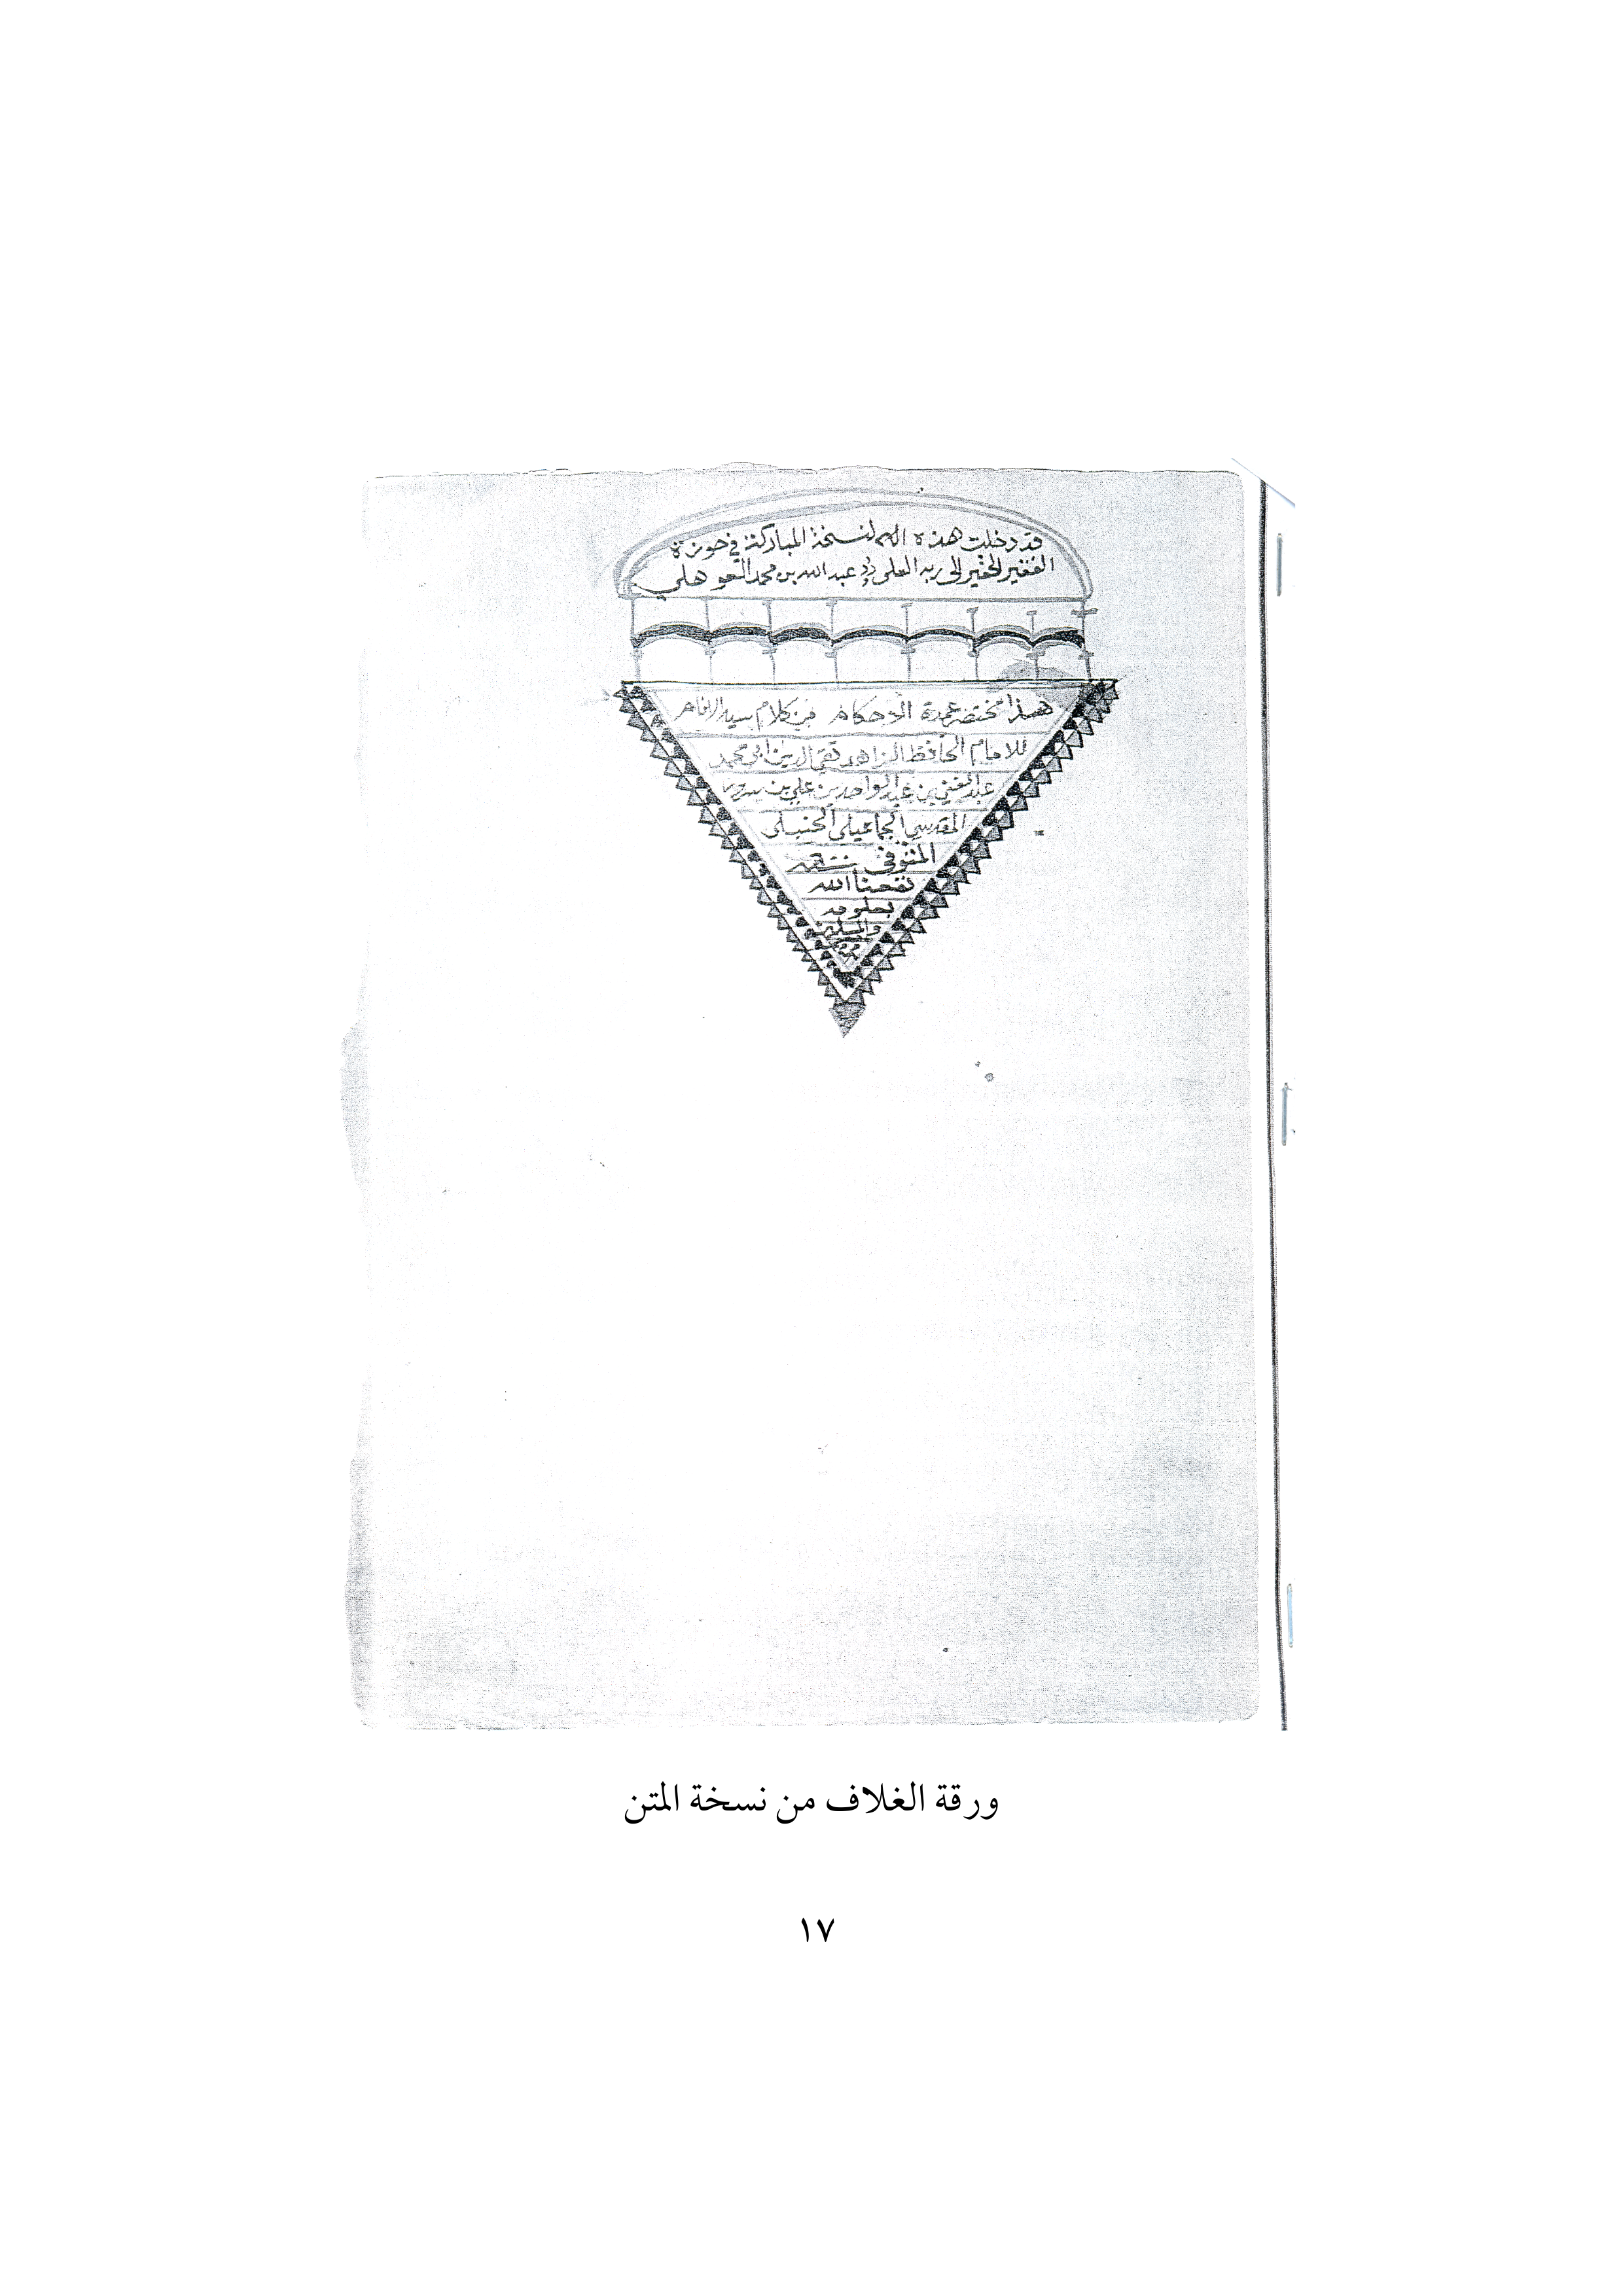 قد دخلت هذه النسخة المباركة في حوزة
الفقير الحقير إلى ربه العلي عبد الله بن محمد العوهلي
هذا مختصر عمدة الأحكام من كلام سيد الأنام
للامام الحافظ الزاهد تقي الدين ابي محمد
عبد الغني بن عبد الواحد بن علي بن سرور
المقدسي الجماعيلي الحنبلي
المتوفى
نفعنا الله
بعلومه
والمسلمين
ورقة الغلاف من نسخة المتن
١٧